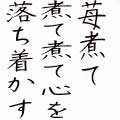 苺煮て
煮て煮て心を
落ち着かす